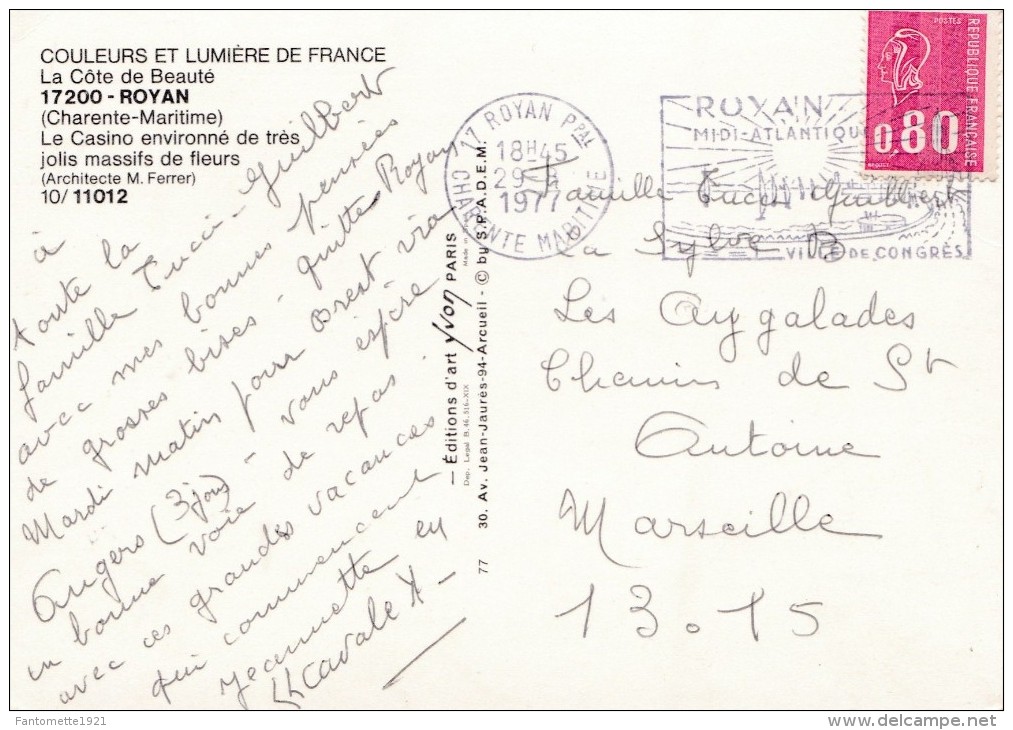 COULEURS ET LUMIÈRE DE FRANCE
La Côte de Beauté
17200 - ROYAN
(Charente-Maritime)
Le Casino environné de très
jolis massifs de fleurs
(Architecte M. Ferrer)
10/ 11012
à
toute la
famille Tucci-Guilbert
avec mes bonnes pensées
de grosses bises - quitte Royan
Mardi matin pour Brest via
Angers (3 jours) - vous espère
en bonne voie de repos
avec ces grandes vacances
qui commencent
Jeannette en
Cavale
— Éditions d'art Yvon PARIS
Dep. Legal B.46.516-XIX
Made in
30. Av. Jean-Jaurès-94-Arcueil - © by S.P.A.D.E.M.
77
17 ROYAN PPAL
18H45
29
1977
CHARENTE MARITIME
ROYAN
MIDI-ATLANTIQUE
VILLE DE CONGRÈS
POSTES
REPUBLIQUE FRANÇAISE
0,80
Famille Tucci Guilbert
La Sylve B
Les Aygalades
Chemin de St
Antoine
Marseille
13.15
Fantomette1921
www.delcampe.net